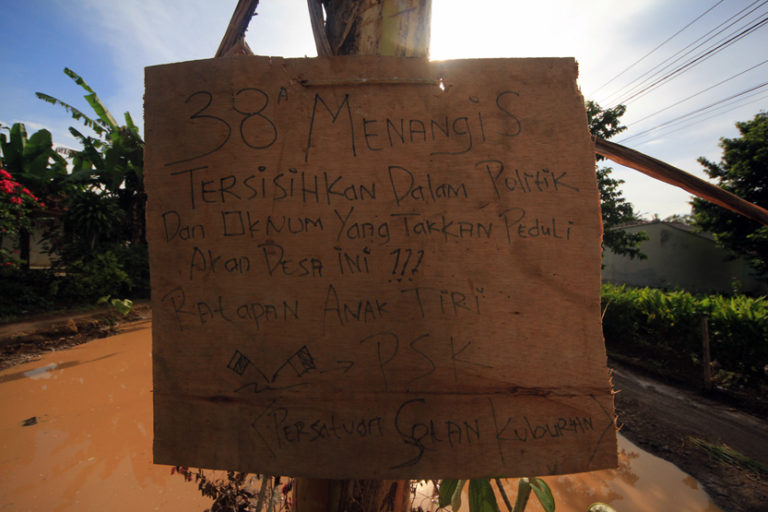 38A MENANGiS
TERSISIHKAN DaLam PoLitiK
Dan OKNUM Yang TAKKAN PEDULi
AKan DESa iNi ???
RaTapan ANAK TiRi
PSK
<PERSaTUan GaLAN KUBURAN>